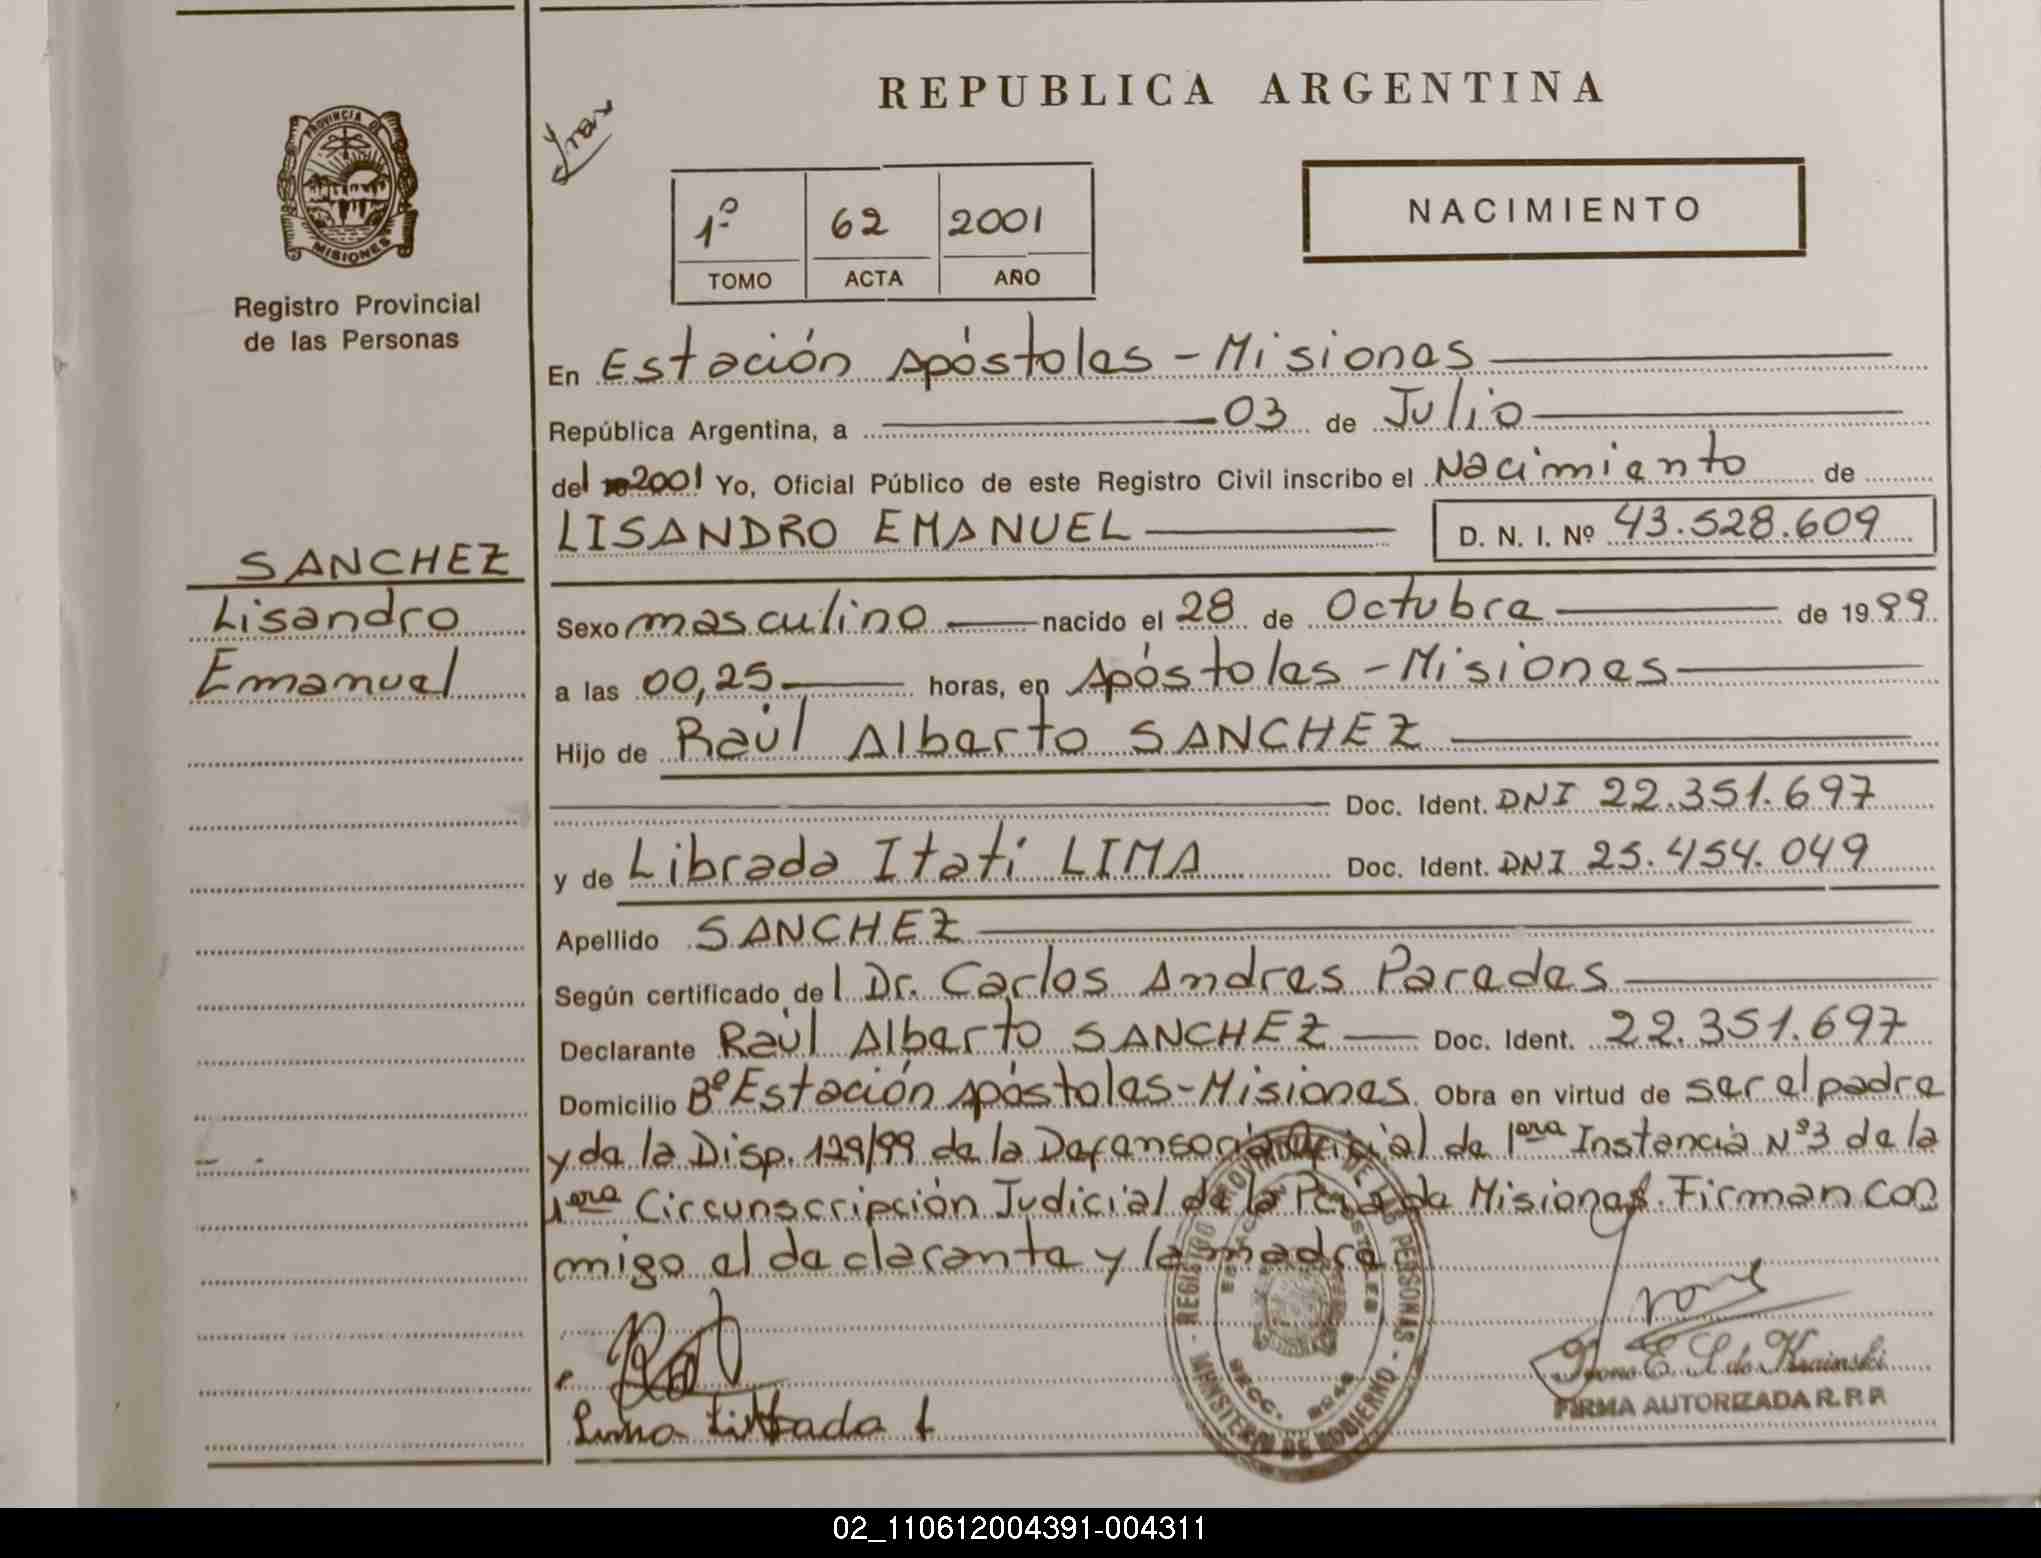 REPUBLICA ARGENTINA
PROVINCIA DE
MISIONES
Registro Provincial
de las Personas
1º 62 2001
TOMO ACTA AÑO
NACIMIENTO
En Estación Apóstoles - Misiones
República Argentina, a 03 de Julio
del 2001 Yo, Oficial Público de este Registro Civil inscribo el Nacimiento de
LISANDRO EMANUEL D. N. I. Nº 43.528.609
SANCHEZ
Lisandro
Emanuel
Sexo masculino nacido el 28 de Octubre de 1999
a las 00,25 horas, en Apóstoles - Misiones
Hijo de Raúl Alberto SANCHEZ
Doc. Ident. DNI 22.351.697
y de Librada Itatí LIMA Doc. Ident. DNI 25.454.049
Apellido SANCHEZ
Según certificado del Dr. Carlos Andres Paredes
Declarante Raúl Alberto SANCHEZ Doc. Ident. 22.351.697
Domicilio Bº Estación Apóstoles - Misiones Obra en virtud de ser el padre
y de la Disp. 129/99 de la Defensoría Oficial de 1era Instancia Nº3 de la
1era Circunscripción Judicial de la Pcia de Misiones. Firman con
migo el declarante y la madre
REGISTRO PROVINCIAL DE LAS PERSONAS
MINISTERIO DE GOBIERNO
Lima Librada I
FIRMA AUTORIZADA R. P. P.
02_110612004391-004311